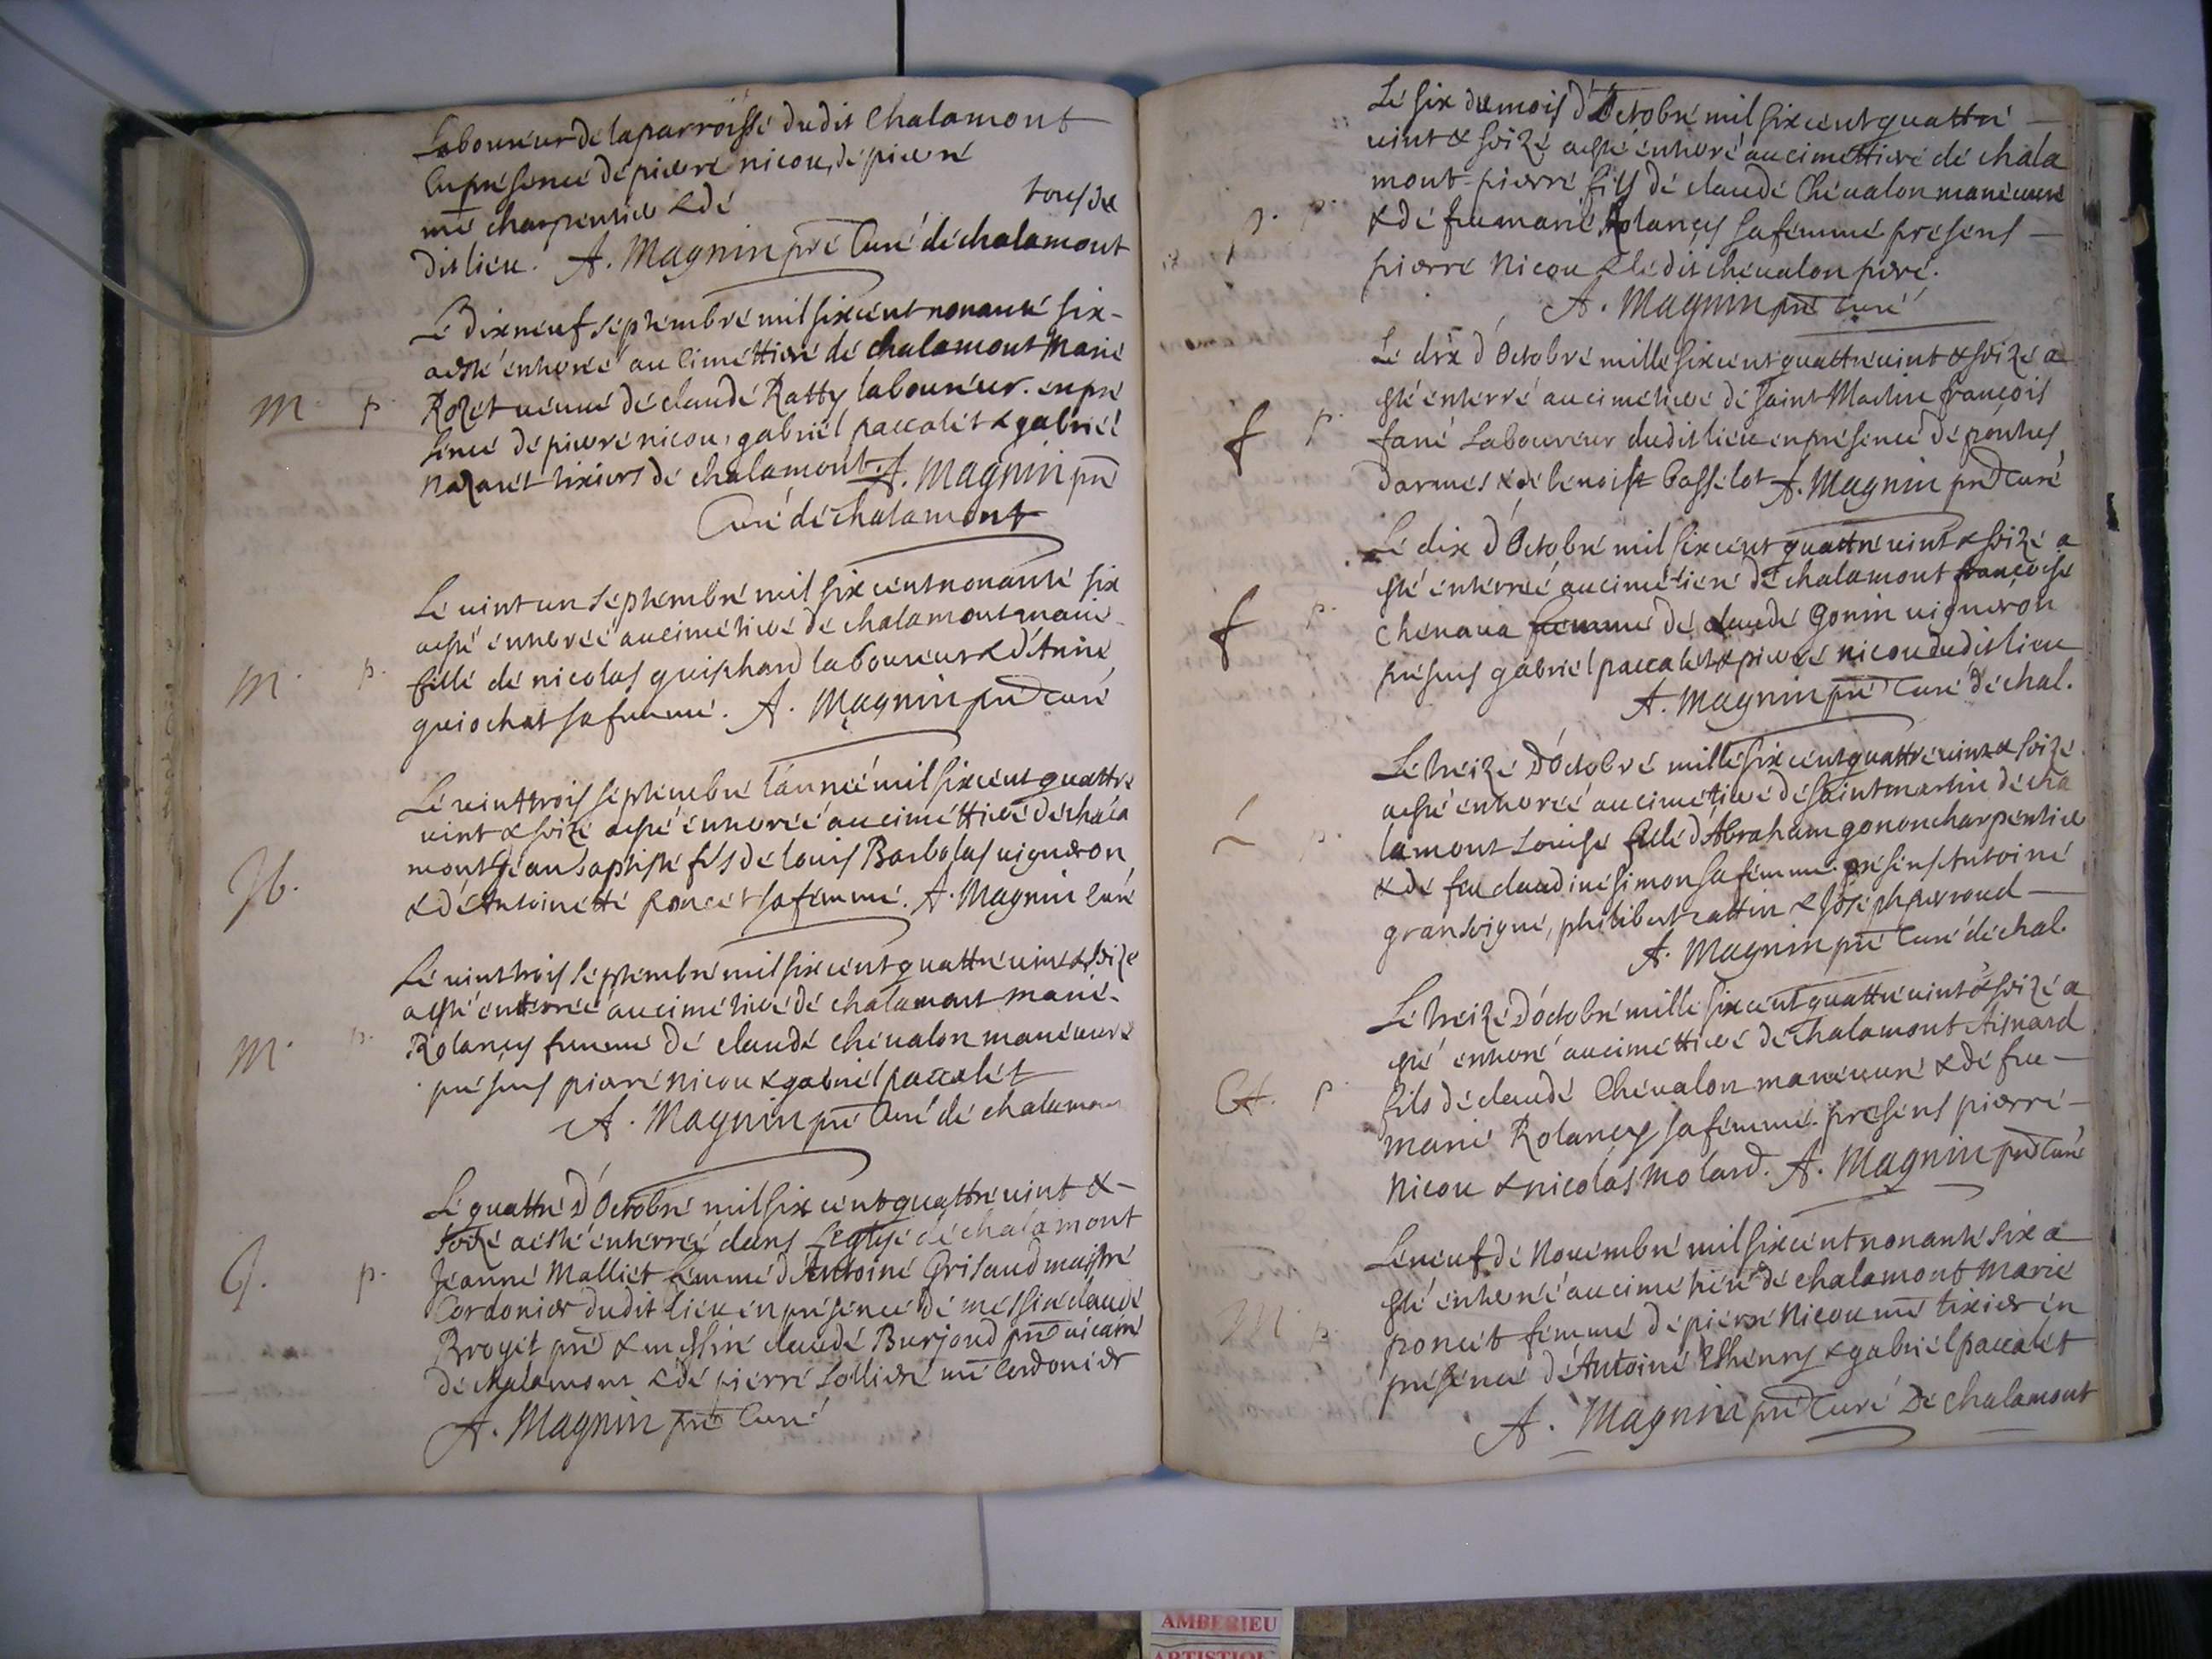 Laboureur de la parroisse dudit Chalamont
En présence de pierre nicou, de pierre
tous du
me charpentier & de
dit lieu. A. Magnin pre Curé de chalamont
Le dixneuf septembre mil six cent nonante six
a esté enterré au Cimettiere de chalamont Marie
M. p. Rozet veuve de claude Ratty laboureur. en pre
sence de pierre nicou, gabriel paccalet & gabriel
Nazaret tixiers de chalamont. A. Magnin pre
Curé de chalamont
Le vint un septembre mil six cent nonante six
a esté enterrée au cimetiere de chalamont marie
M. p. fille de nicolas guichard laboureur & d'Anne
guiochat sa femme. A. Magnin pre curé
Le vint trois septembre l'année mil six cent quattre
vint & seize a esté enterré au cimettiere de chala
mont Jean baptiste fils de louis Barbolas vigneron
Jb. & de Antoinette poncet sa femme. A. Magnin Curé
Le vint trois septembre mil six cent quattre vint & seize
a esté enterrée au cimetiere de chalamont marie
M. p. Rolancy femme de claude chevalon maneuvre
présens pierre nicou & gabriel paccalet
A. Magnin pre Curé de chalamont
Le quattre d'Octobre mil six cent quattre vint &
seize a esté enterrée dans L'eglise de chalamont
J. p. Jeanne Malliet femme d'Antoine Grisaud maistre
Cordonier dudit lieu en présence de messire claude
Broyet pre & messire claude Burjoud pre vicaire
de chalamont & de pierre Sollier me Cordonier
A. Magnin pre Curé
Le six du mois d'Octobre mil six cent quattre
vint & seize a esté enterré au cimettiere de chala
mont pierre fils de claude Chevalon maneuvre
p. p. & de feu marie Rolancy sa femme présens
pierre Nicou & ledit chevalon pere.
A. Magnin pre Curé
Le dix d'Octobre mille six cent quattre vint & seize a
esté enterré au cimetiere de saint Martin françois
f p. fané Laboureur dudit lieu en présence de ponthus
darmes & de benoist bosselot A. Magnin pre Curé
Le dix d'Octobre mil six cent quattre vint & seize a
esté enterrée au cimetiere de chalamont françoise
f p. chenava femme de claude Gonin vigneron
présens gabriel paccalet & pierre nicou dudit lieu
A. Magnin pre Curé de chal.
Le treize D'Octobre mille six cent quattre vint & seize
a esté enterrée au cimetiere de saint martin de cha
p. lamont Louise fille d'Abraham gonon charpentier
& de feu claudine simon sa femme. présens Antoine
gransvigne, philibert rattin & Joseph perroud
A. Magnin pre Curé de chal.
Le treize D'octobre mille six cent quattre vint & seize a
esté enterré au cimettiere de chalamont Aynard
A. p. fils de claude Chevalon maneuvre & de feu
marie Rolancy sa femme. présens pierre
Nicou & nicolas Molard. A. Magnin pre Curé
Le neuf de Novembre mil six cent nonante six a
esté enterrée au cimetiere de chalamont Marie
M. p. poncet femme de pierre Nicou me tixier en
présence d'Antoine Thenry & gabriel paccalet
A. Magnin pre Curé De chalamont
AMBERIEU